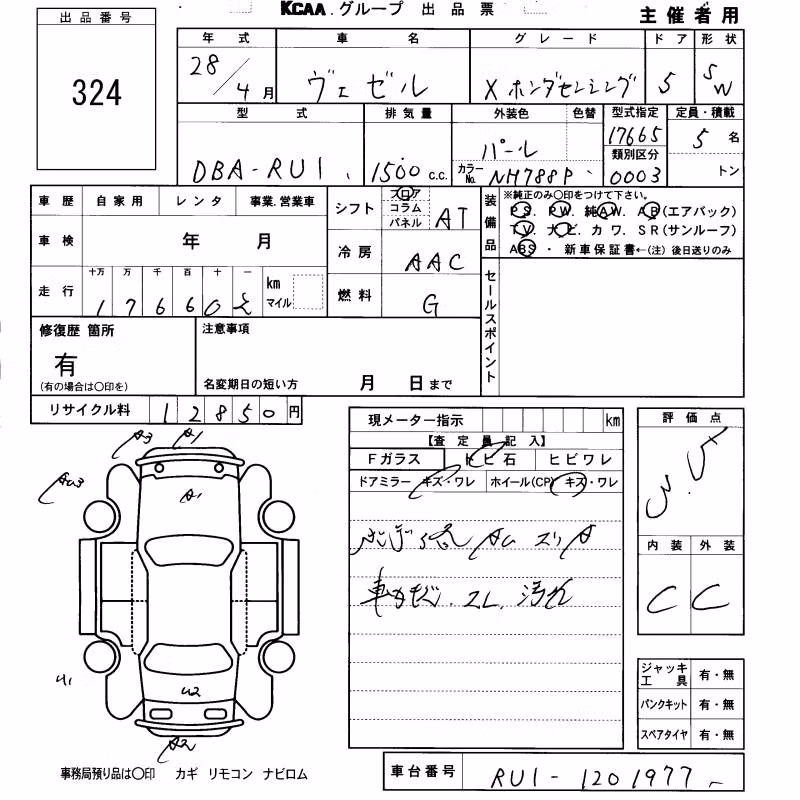 KCAA.グループ 出品票
主催者用
出品番号
324
年式 車名 グレード ドア 形状
28/4月 ヴェゼル X ホンダセンシング 5 SW
型式 排気量 外装色 色替 型式指定 定員・積載
DBA-RU1 1500 c.c. パール 17665 5名
類別区分
カラーNo. NH788P 0003 トン
車歴 自家用 レンタ 事業.営業車
シフト フロア コラム パネル AT
装備品 ※純正のみ○印をつけて下さい。
PS. PW. 純AW. AB(エアバック)
TV. ナビ. カワ. SR(サンルーフ)
ABS ・ 新車保証書←(注) 後日送りのみ
車検 年 月
冷房 AAC
走行 十万 万 千 百 十 一 km マイル
176602
燃料 G
セールスポイント
修復歴 箇所
有
(有の場合は○印を)
注意事項
名変期日の短い方 月 日まで
リサイクル料 12850円
現メーター指示 km
【査定員記入】
Fガラス トビ石 ヒビワレ
ドアミラー キズ・ワレ ホイール(CP) キズ・ワレ
評価点
3.5
A3 A1
AU3
A1
U1
U2
A2
AU スリA
車内 スレ 汚れ
内装 外装
C C
ジャッキ工具 有・無
パンクキット 有・無
スペアタイヤ 有・無
事務局預り品は○印 カギ リモコン ナビロム
車台番号 RU1-1201977